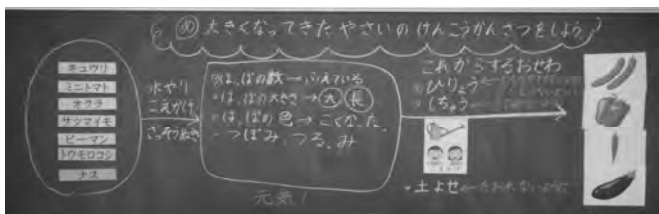 め 大きくなってきたやさいのけんこうかんさつをしよう
キュウリ
ミニトマト
オクラ
サツマイモ
ピーマン
トウモロコシ
ナス
水やり
こえかけ
ざっそうぬき
は,ぱの数→ふえている
は,ぱの大きさ→大 長
は,ぱの色→こくなった。
つぼみ、つる、み
元気!
これからするおせわ
ひりょう
しちゅう
土よせ←たおれないように